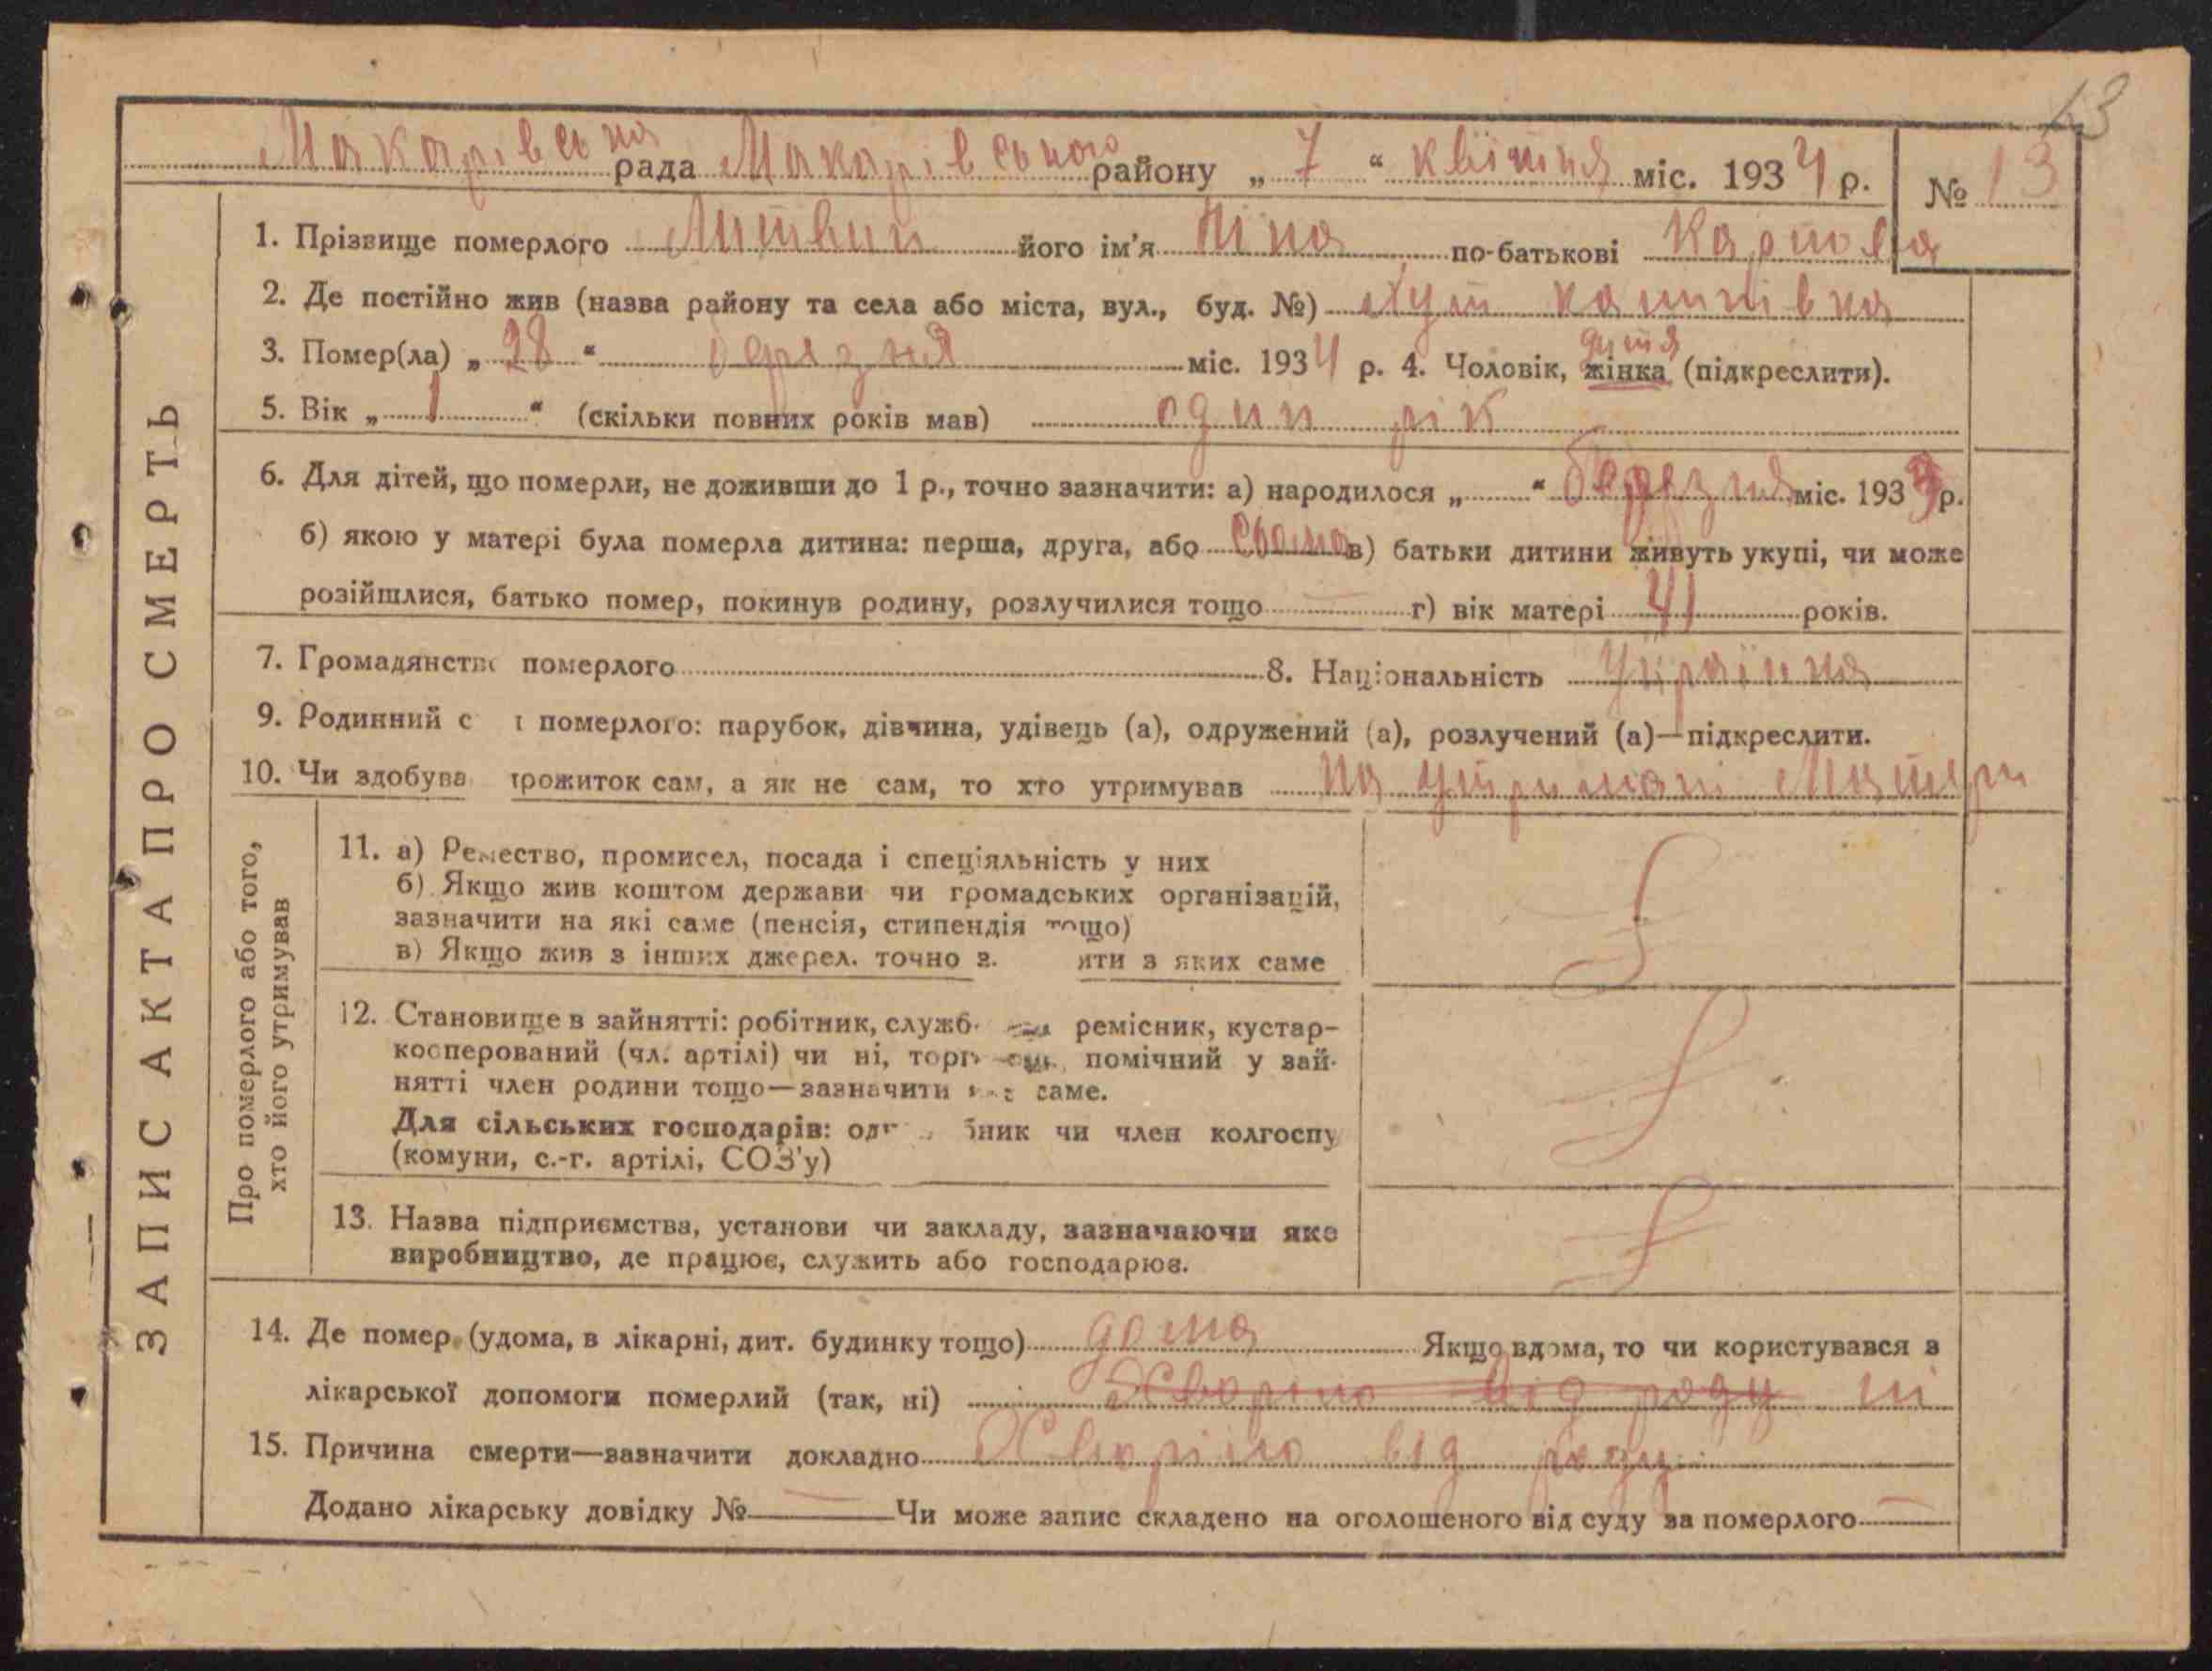 13
Макарівська рада Макарівського району „ 7 “ квітня міс. 1934 р. № 13
1. Прізвище померлого Литвин його ім'я Ніна по-батькові Карпова
2. Де постійно жив (назва району та села або міста, вул., буд. №) хут
дитя
3. Помер(ла) „ 28 “ березня міс. 1934 р. 4. Чоловік, жінка (підкреслити).
5. Вік „ 1 “ (скільки повних років мав) один рік
6. Для дітей, що померли, не доживши до 1 р., точно зазначити: а) народилося „ “ березня міс. 1933 р.
б) якою у матері була померла дитина: перша, друга, або в) батьки дитини живуть укупі, чи може
розійшлися, батько помер, покинув родину, розлучилися тощо — г) вік матері 41 років.
7. Громадянство померлого 8. Національність Українка
9. Родинний с померлого: парубок, дівчина, удівець (а), одружений (а), розлучений (а)—підкреслити.
10. Чи здобува прожиток сам, а як не сам, то хто утримував на утримані матери
ЗАПИС АКТА ПРО СМЕРТЬ
Про померлого або того,
хто його утримував
11. а) Ремество, промисел, посада і спеціяльність у них
б) Якщо жив коштом держави чи громадських організацій,
зазначити на які саме (пенсія, стипендія тощо)
в) Якщо жив з інших джерел. точно з яких саме
12. Становище в зайнятті: робітник, служб ремісник, кустар-
косперований (чл. артілі) чи ні, помічний у зай-
нятті член родини тощо—зазначити саме.
Для сільських господарів: чи член колгоспу
(комуни, с.-г. артілі, СОЗ'у)
13. Назва підприємства, установи чи закладу, зазначаючи яке
виробництво, де працює, служить або господарює.
14. Де помер (удома, в лікарні, дит. будинку тощо) дома Якщо вдома, то чи користувався з
лікарської допомоги померлий (так, ні) Хворіло від роду ні
15. Причина смерти—зазначити докладно Хворіло від роду
Додано лікарську довідку № — Чи може запис складено на оголошеного від суду за померлого —